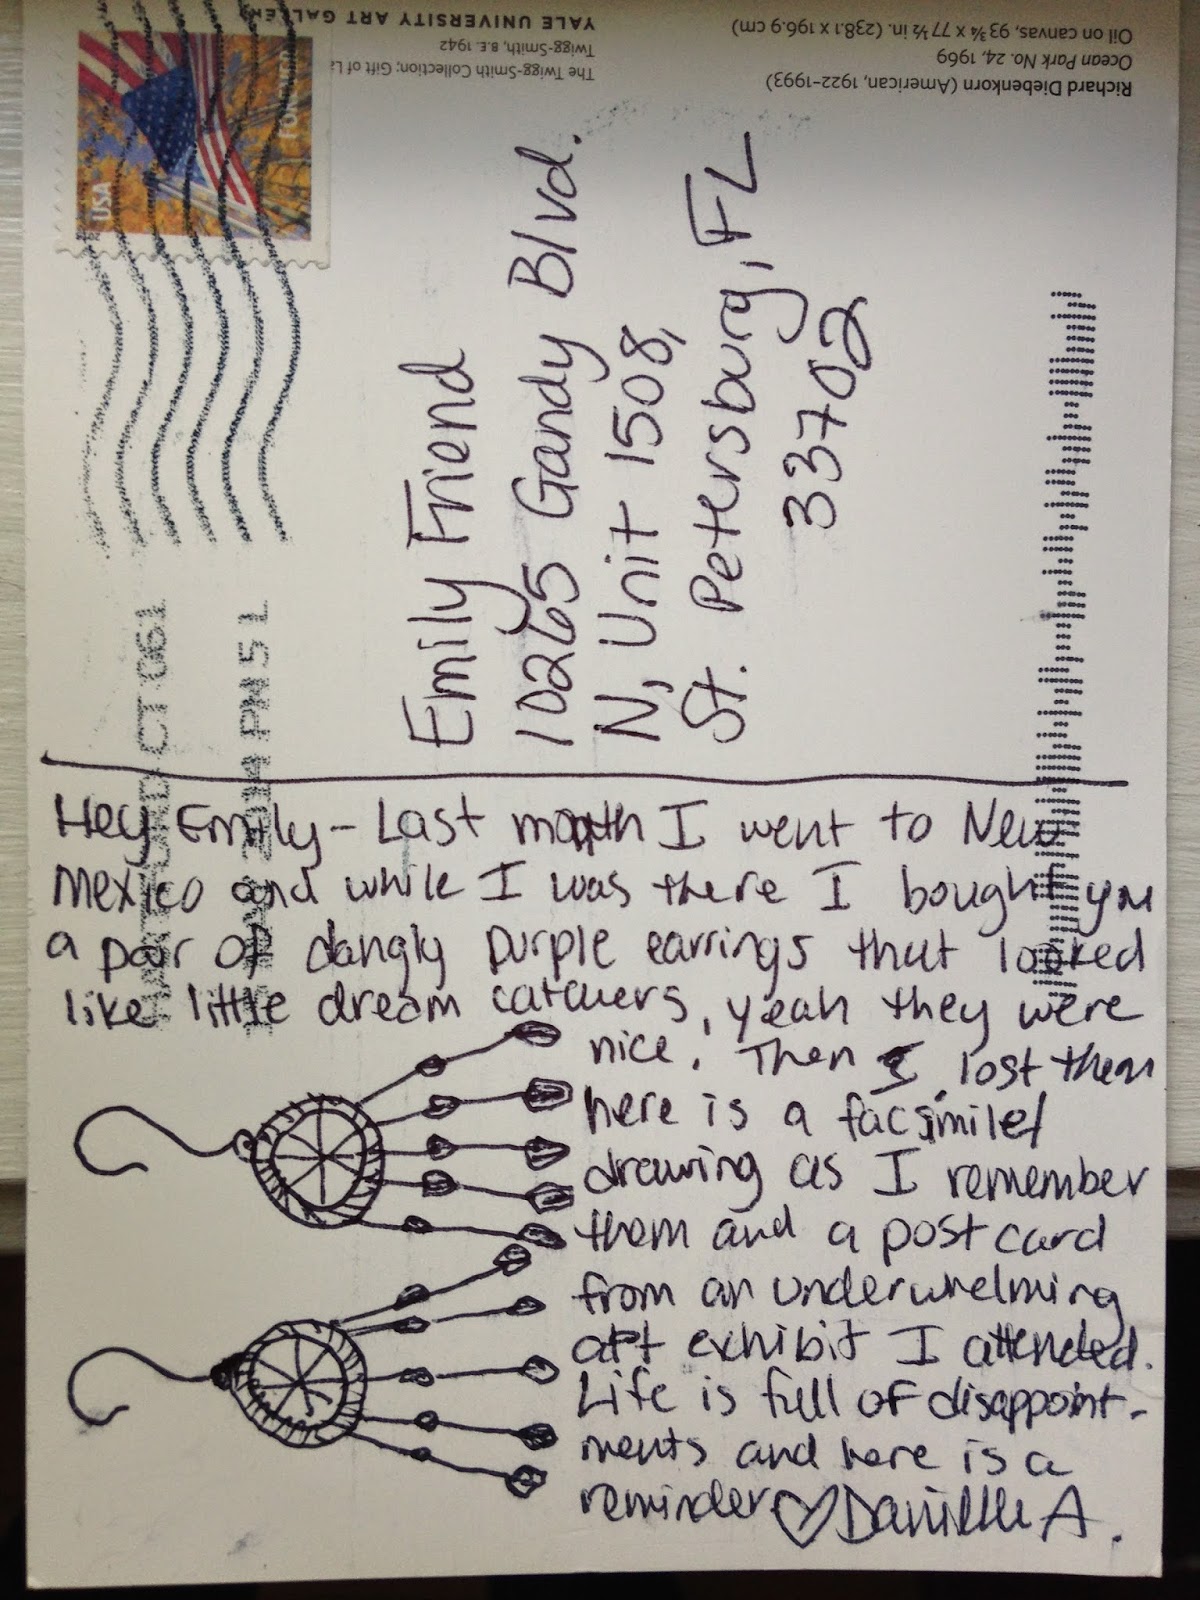 YALE UNIVERSITY ART GALLERY
The Twigg-Smith Collection; Gift of
Twigg-Smith, B.E. 1942
Richard Diebenkorn (American, 1922–1993)
Ocean Park No. 24, 1969
Oil on canvas, 93 ¾ x 77 ½ in. (238.1 x 196.9 cm)
USA
HARTFORD CT 061
PM 5 L
Emily Friend
10265 Gandy Blvd.
N, Unit 1508,
St. Petersburg, FL
33702
Hey Emily – Last month I went to New
Mexico and while I was there I bought you
a pair of dangly purple earrings that looked
like little dream catchers, yeah they were
nice. Then I lost them
here is a facsimile/
drawing as I remember
them and a postcard
from an underwhelming
art exhibit I attended.
Life is full of disappoint-
ments and here is a
reminder ♡ Danielle A.